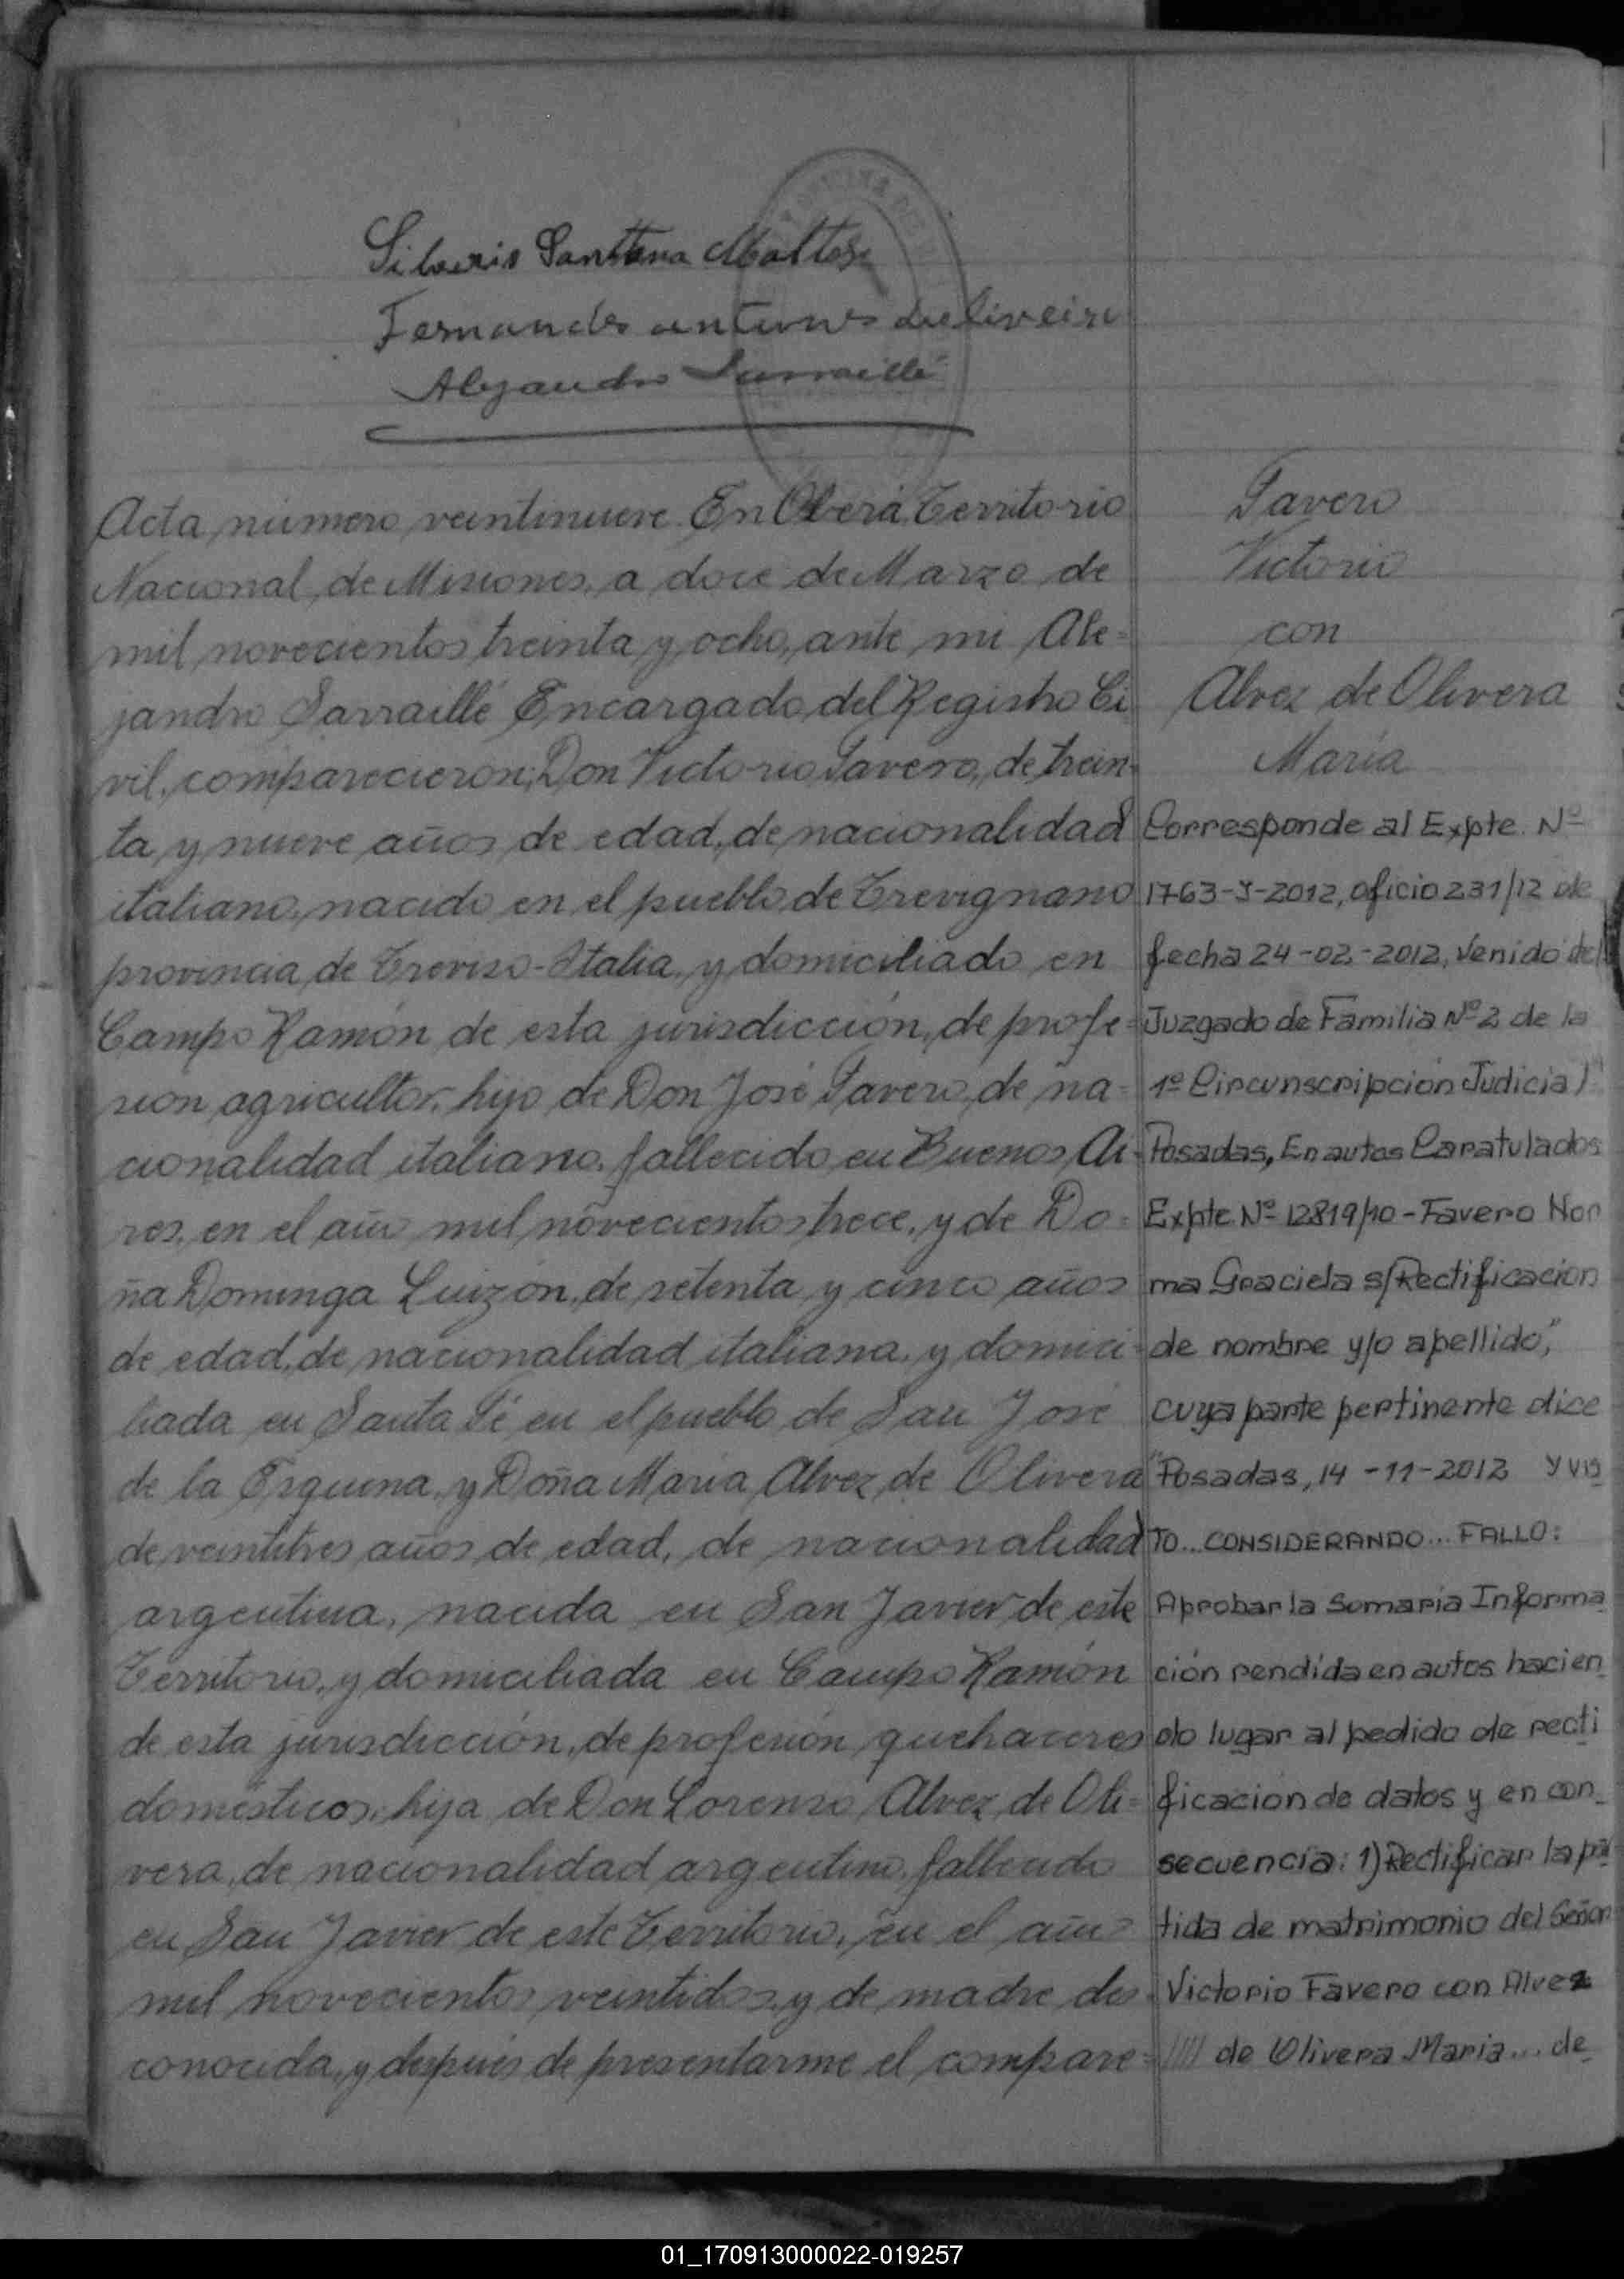 Silveris Santana Mattos
Fernandes antunes de liveira
Alejandro Sarraillé
Acta número veintinueve. En Oberá, Territorio
Nacional de Misiones, a doce de Marzo de
mil novecientos treinta y ocho, ante mi Ale=
jandro Sarraillé Encargado del Registro Ci
vil, comparecieron; Don Victorio Favero, de trein=
ta y nueve años de edad, de nacionalidad
italiano, nacido en el pueblo de Trevignano
provincia de Treviso-Italia, y domiciliado en
Campo Ramón de esta jurisdicción, de profe=
sion agricultor, hijo de Don José Favero, de na=
cionalidad italiano, fallecido en Buenos Ai=
res, en el año mil novecientos trece, y de Do=
ña Dominga Luizón, de setenta y cinco años
de edad, de nacionalidad italiana, y domici=
liada en Santa Fé en el pueblo de San José
de la Esquina, y Doña María Alvez de Olivera
de veintitres años de edad, de nacionalidad
argentina, nacida en San Javier de este
Territorio, y domiciliada en Campo Ramón
de esta jurisdicción, de profesión quehaceres
domésticos, hija de Don Lorenzo Alvez de Oli=
vera, de nacionalidad argentino, fallecido
en San Javier de este Territorio, en el año
mil novecientos veintidos, y de madre des=
conocida, y después de presentarme el compare=
Favero
Victorio
con
Alvez de Olivera
María
Corresponde al Expte. Nº
1763-J-2012, oficio 231/12 de
fecha 24-02-2012, Venido del
Juzgado de Familia Nº 2 de la
1º Circunscripción Judicial
Posadas, En autos Caratulados
Expte Nº 12819/10 - Favero Nor
ma Graciela s/Rectificacion
de nombre y/o apellido,"
cuya parte pertinente dice
"Posadas, 14 -11-2012 Y VIS
TO... CONSIDERANDO... FALLO:
Aprobar la Sumaria Informa
ción rendida en autos hacien_
do lugar al pedido de recti
ficación de datos y en con_
secuencia: 1) Rectificar la par
tida de matrimonio del Señor
Victorio Favero con Alvez
//// de Olivera Maria... de
01_170913000022-019257